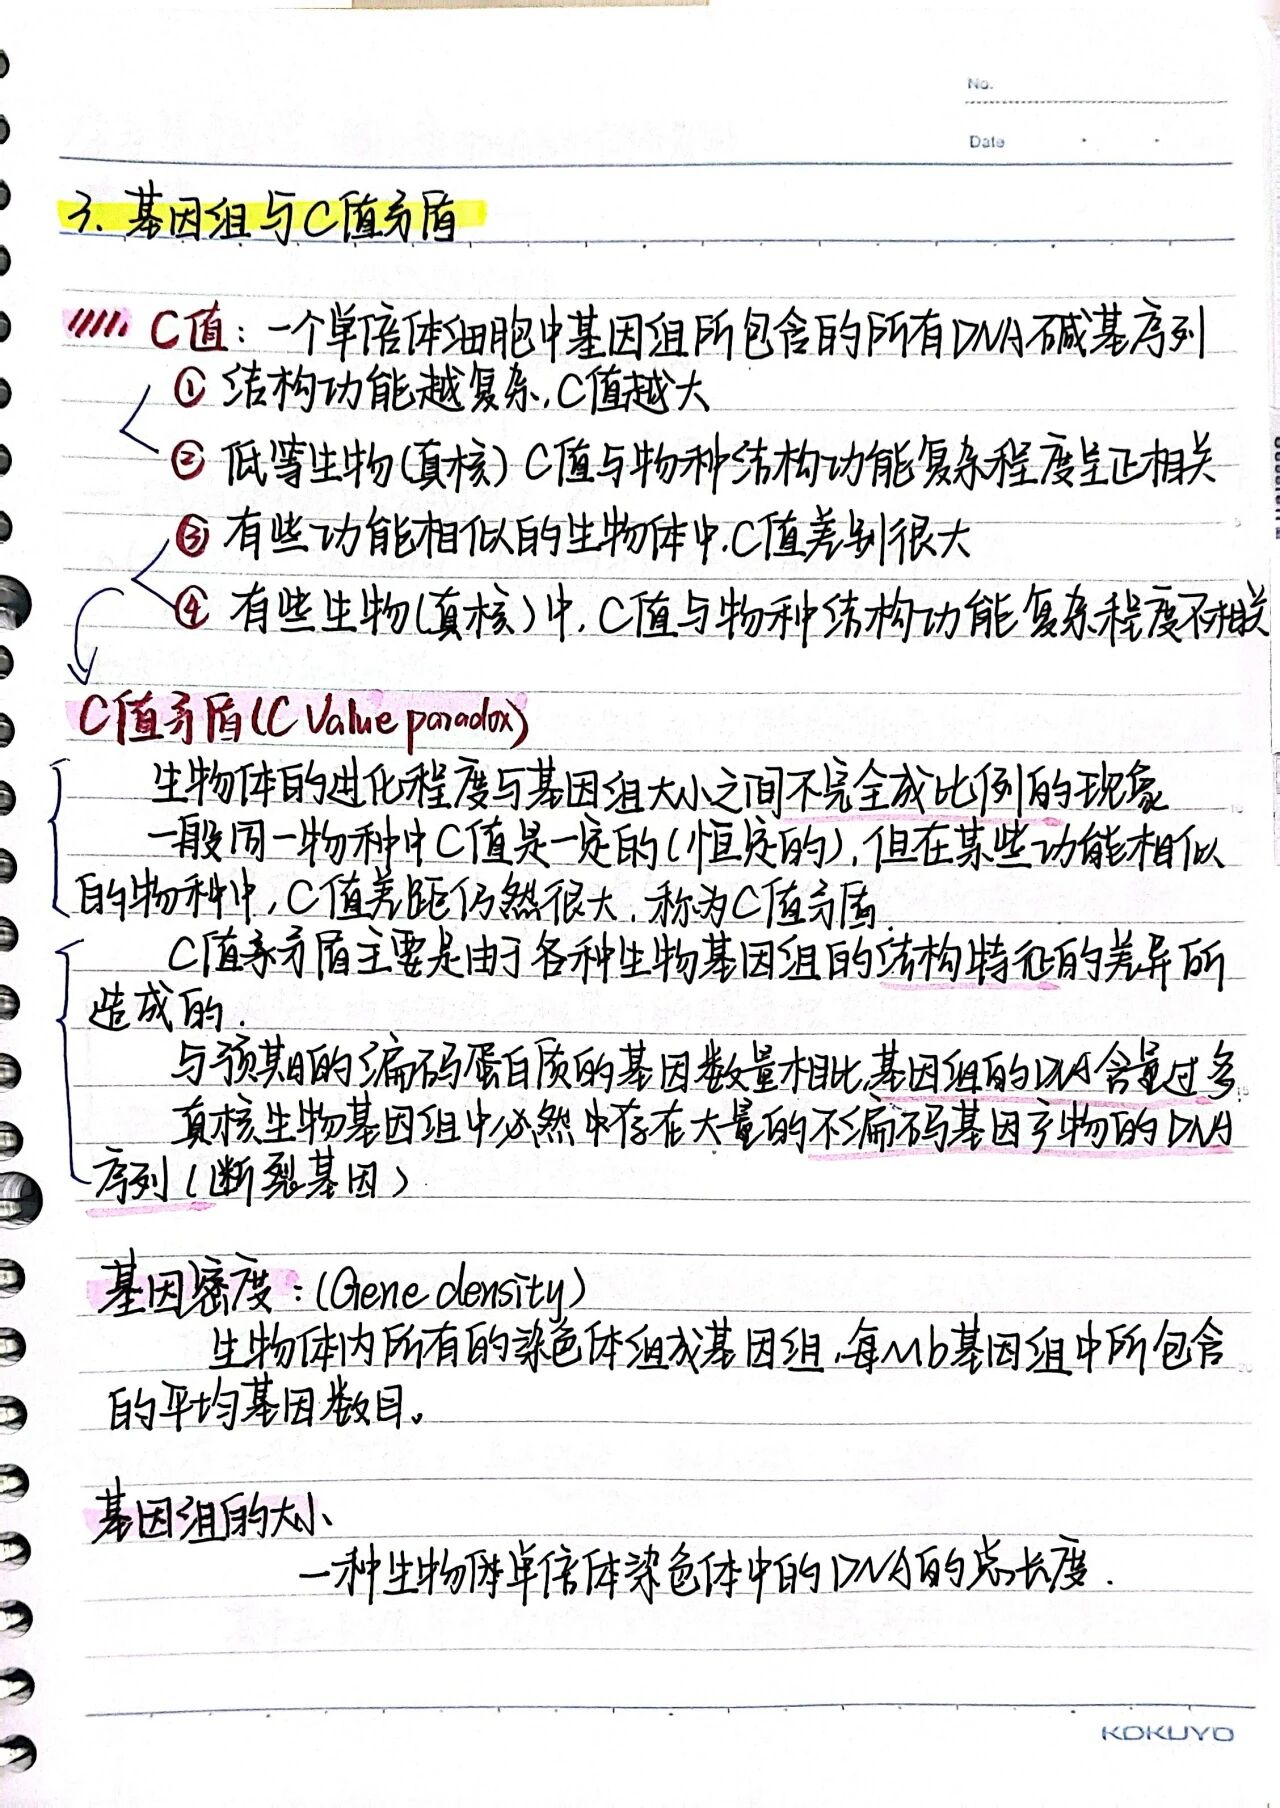 No.
Date
3. 基因组与C值矛盾
C值：一个单倍体细胞中基因组所包含的所有DNA碱基序列
① 结构功能越复杂,C值越大
② 低等生物(真核) C值与物种结构功能复杂程度呈正相关
③ 有些功能相似的生物体中,C值差别很大
④ 有些生物(真核)中, C值与物种结构功能复杂程度不相关
C值矛盾(C Value paradox)
生物体的进化程度与基因组大小之间不完全成比例的现象
一般同一物种中C值是一定的(恒定的),但在某些功能相似
的物种中, C值差距仍然很大, 称为C值矛盾
C值矛盾主要是由于各种生物基因组的结构特征的差异所
造成的.
与预期的编码蛋白质的基因数量相比,基因组的DNA含量过多
真核生物基因组中必然中存在大量的不编码基因产物的DNA
序列(断裂基因)
基因密度：(Gene density)
生物体内所有的染色体组成基因组,每Mb基因组中所包含
的平均基因数目。
基因组的大小
一种生物体单倍体染色体中的DNA的总长度.
KOKUYO